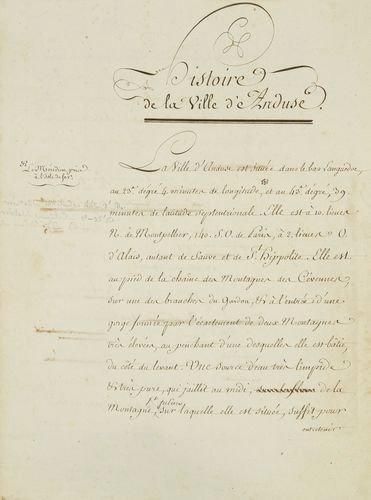 Histoire
de la Ville d'Anduse.
(*) Le Meridien, pris
à l'Isle de fer.
La Ville d'Anduse est située dans le bas Languedoc,
au 23e. degré 4 minutes de longitude, (*) et au 43e. degré, 39
minutes de latitude septentrionale. Elle est à 10. lieues
N. de Montpellier, 140. S.O. de Paris, à 2. lieues O.
d'Alais, autant de Sauve et de St. Hippolite. Elle est
au pied de la chaîne des Montagnes des Cévennes,
sur une des branches du Gardon, & à l'entrée d'une
gorge formée par l'écartement de deux Montagnes
très élevées, au penchant d'une desquelles elle est bâtie,
du côté du levant. Une source d'eau très limpide
& très pure, qui jaillit au midi, de la
Montagne St. Julien sur laquelle elle est située, suffit pour
entretenir